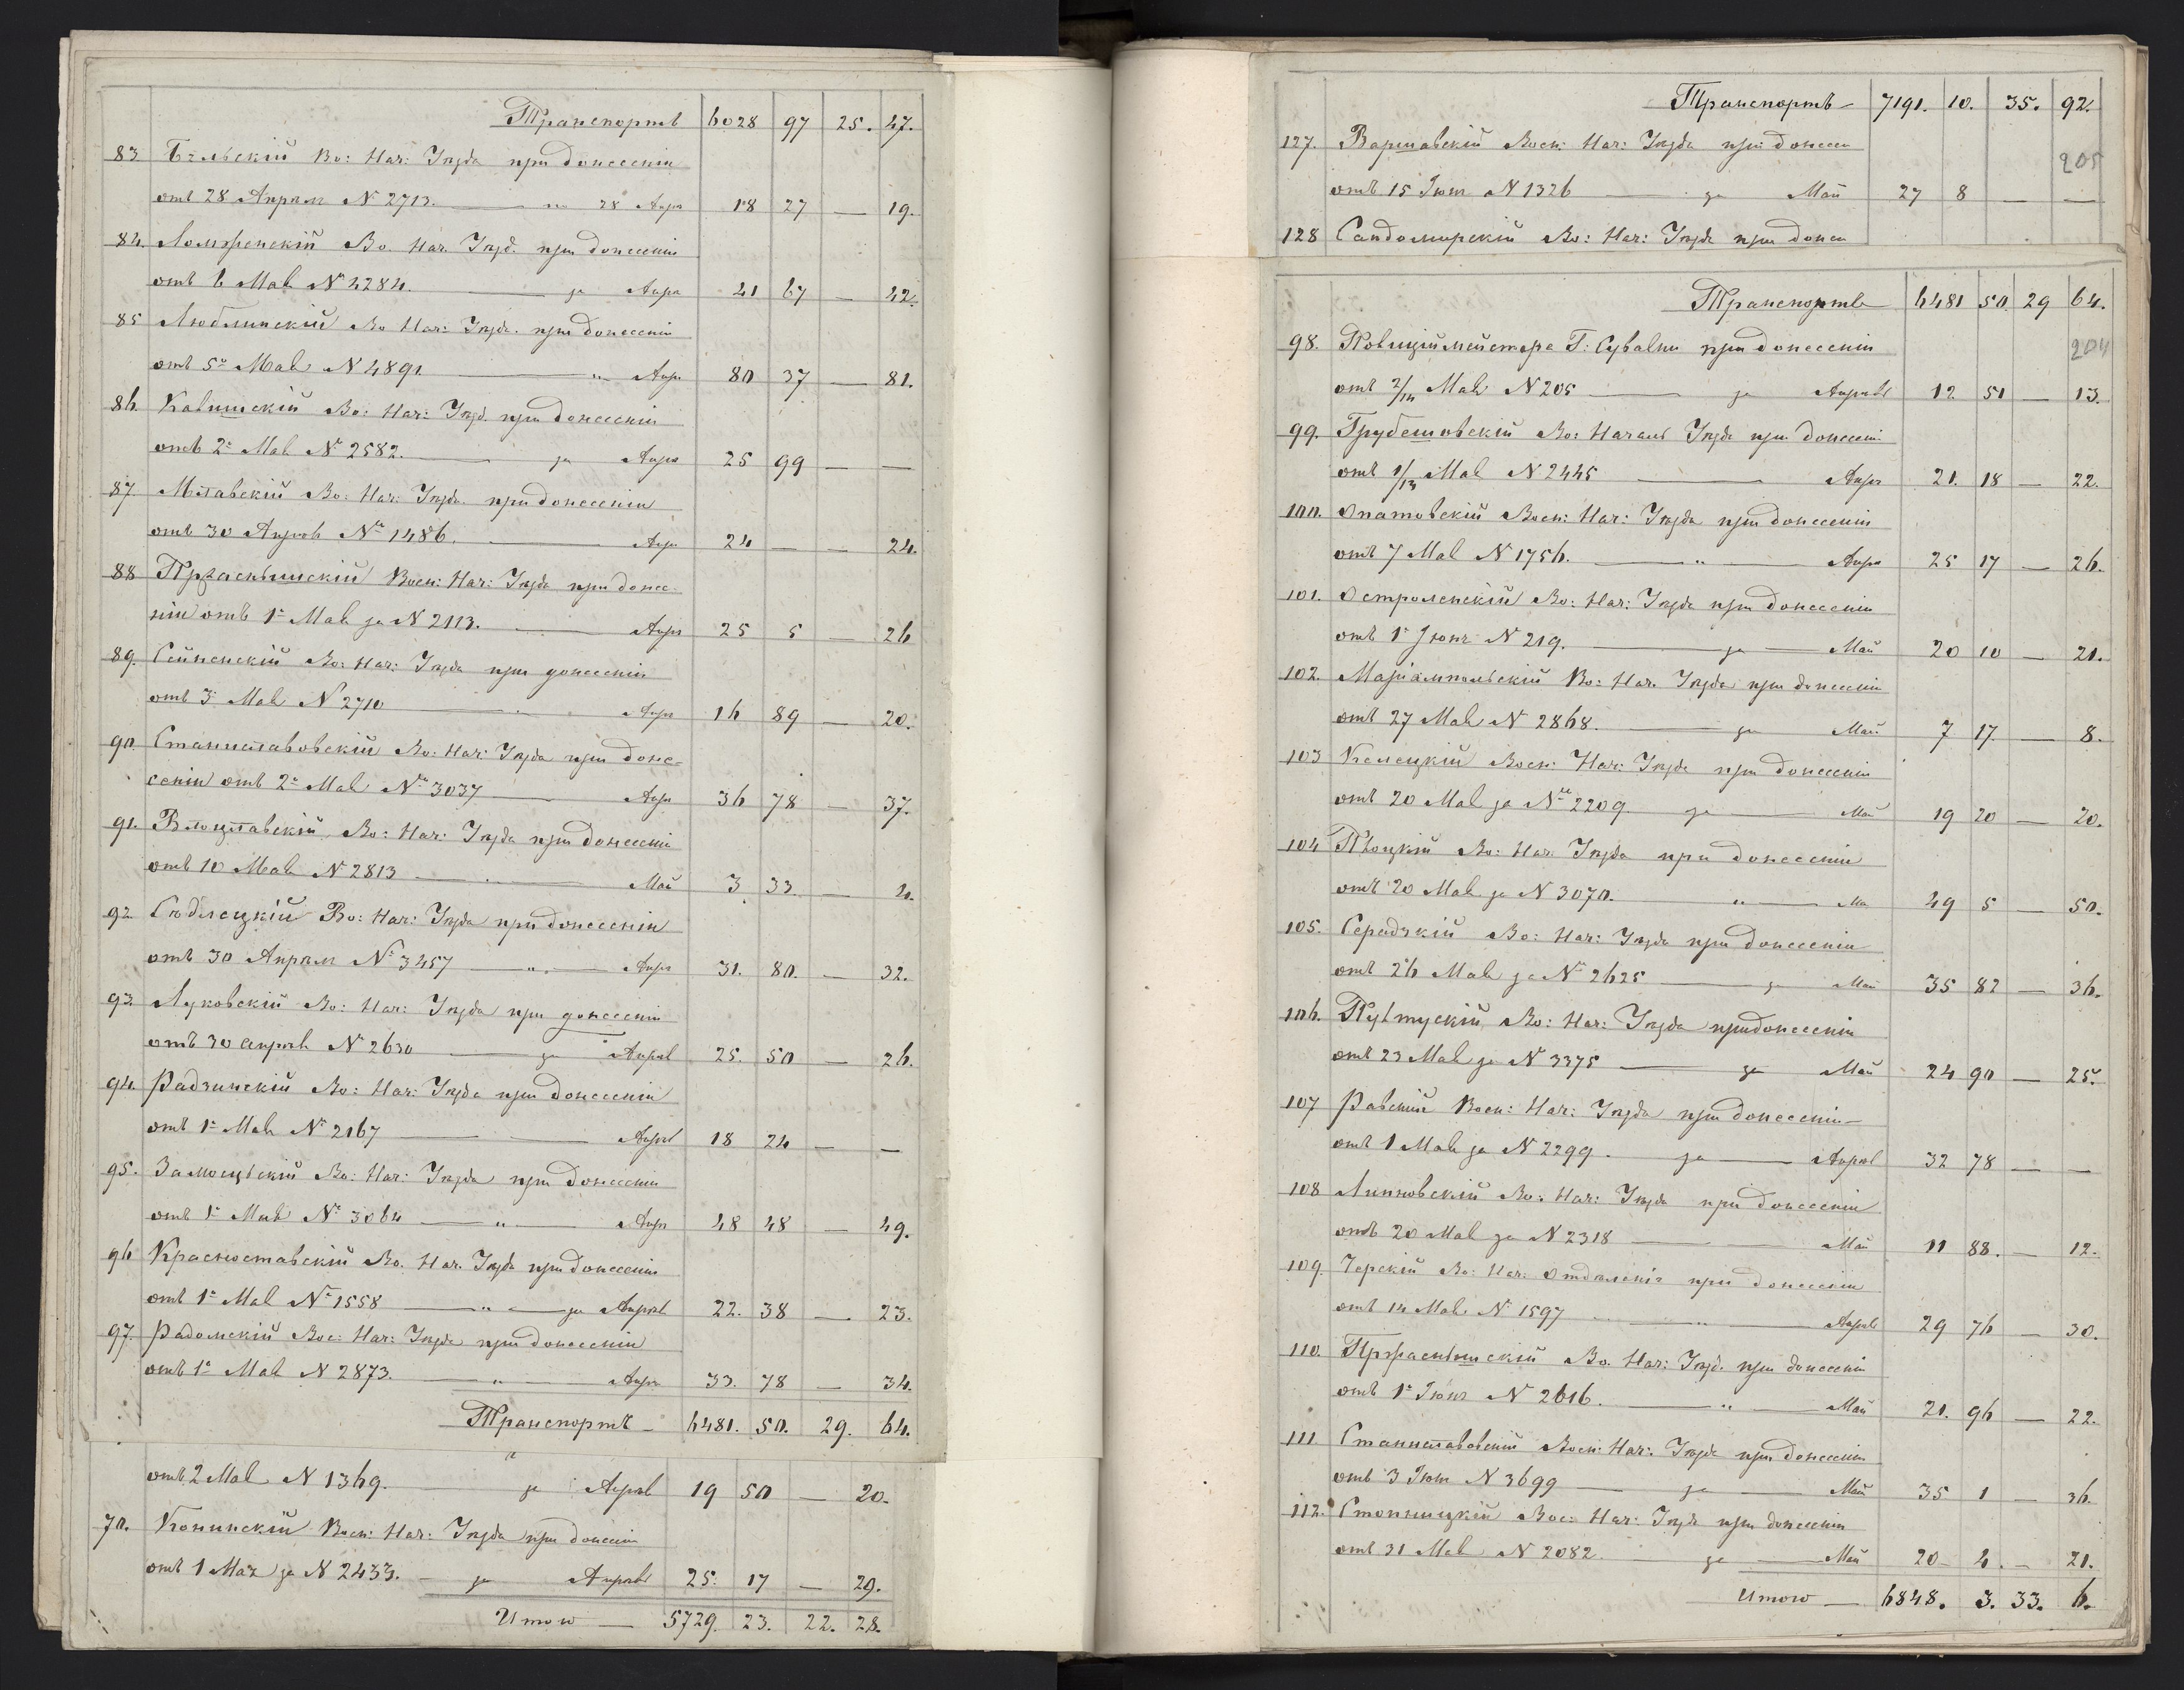 Транспортъ 6028 97 25. 47.
83 Бѣльскій Во: Нач: Уѣзда при донесеніи
отъ 28 Апрѣля № 2713. — 28 Апр 18 27 — 19.
84. Ломженскій Во. Нач. Уѣзд. при донесеніи
отъ 6 Мая № 4284. — за Апр 41 67 — 42.
85 Люблинскій Во Нач: Уѣзда. при донесеніи
отъ 5го Мая № 4891 — " Апр. 80 37 — 81.
86. Калишскій Во: Нач: Уѣзд. при донесеніи
отъ 2го Мая № 2582. — за Апр 25 99 — —
87. Млавскій Во: Нач: Уѣзда. при донесеніи
отъ 30 Апрѣля № 1486. — Апр 24 — — 24.
88 Прзаснышскій Воен: Нач: Уѣзда при донес-
ніи отъ 1го Мая за № 2113. — Апр 25 5 — 26
89. Сейненскій Во: Нач: Уѣзда при донесеніи
отъ 3 Мая № 2710 — Апр 16 89 — 20.
90 Станиславовскій Во: Нач: Уѣзда при доне=
сеніи отъ 2го Мая № 3037 — Апр 36 78 — 37.
91. Влоцлавскій Во: Нач: Уѣзда при донесеніи
отъ 10 Мая № 2813 — Май 3 33. — 4.
92 Сѣдлецкій Во: Нач: Уѣзда при донесеніи
отъ 30 Апрѣля № 3457 — " — Апр 31. 80. — 32.
93. Луковскій Во: Нач: Уѣзда при донесеніи
отъ 30 Апрѣля № 2630 — за Апрѣль 25. 50 — 26.
94. Радзинскій Во: Нач: Уѣзда при донесеніи
отъ 1го Мая № 2167 — Апрѣль 18 24 — —
95. Замосцьскій Во: Нач: Уѣзда при донесеніи
отъ 1го Мая № 3064 — " — Апр 48 48 — 49.
96 Красноставскій Во. Нач. Уѣзда при донесеніи
отъ 1го Мая № 1558 — " — за Апрѣль 22. 38 — 23.
97. Радомскій Вое: Нач: Уѣзда при донесеніи
отъ 1го Мая № 2873. — " — Апр 33. 78 — 34.
Транспортъ — 6481. 50. 29. 64.
отъ 2 Мая № 1369. за Апрѣль 19 50 — 20.
70. Конинскій Воен: Нач: Уѣзда при донесеніи
отъ 1 Мая за № 2433. — за Апрѣль 25. 17 — 29.
Итого — 5729. 23. 22. 28.
Транспортъ — 7191. 10. 35. 92.
127. Варшавскій Воен: Нач: Уѣзда при донесен
205
отъ 15 Іюня № 1326 — за Май 27 8 — —
128 Сандомирскій Во: Нач: Уѣзда при донесен
Транспортъ 6481 50. 29 64.
98. Полиціймейстера Г: Сувалки при донесеніи
204
отъ 2/14 Мая № 205 — за Апрѣль 12 51 — 13.
99. Грубешовскій Во: Началь Уѣзда при донесені
отъ 1/13 Мая № 2445 — Апр 21. 18 — 22.
100. Опатовскій Воен: Нач: Уѣзда при донесеніи
отъ 7 Мая № 1756. — " — Апр 25 17 — 26.
101. Остроленскій Во: Нач: Уѣзда при донесеніи
отъ 1 Іюня № 219. — за — Май 20 10 — 21.
102. Маріампольскій Во: Нач. Уѣзда при донесеніи
отъ 27 Мая № 2868. — за Май 7 17 — 8.
103 Келецкій Воен: Нач: Уѣзда при донесеніи
отъ 20 Мая за № 2209. за — Май 19 20 — 20.
104 Плоцкій Во: Нач: Уѣзда при донесеніи
отъ 20 Мая за № 3070. " — Ма 49 5 — 50.
105. Серадзкій Во: Нач: Уѣзда при донесеніи
отъ 26 Мая за № 2625 — за Май 35 82 — 36.
106. Пултускій Во: Нач: Уѣзда при донесеніи
отъ 23 Мая за № 3375 — за Май 24 90 — 25.
107 Равскій Воен: Нач: Уѣзда при донесеніи —
отъ 1 Мая за № 2299. за — Апрѣль 32 78 — —
108 Липновскій Во: Нач: Уѣзда при донесеніи
отъ 20 Мая за № 2318 — Май 11 88. — 12.
109. Черскій Во: Нач: Отдѣленія при донесеніи
отъ 14 Мая № 1597 — " — Апрѣль 29 76 — 30.
110. Пржаснышскій Во. Нач: Уѣзд. при донесеніи
отъ 1го Іюня № 2616. — " — Май 21. 96 — 22.
111 Станиславовскій Воен: Нач: Уѣзда при донесеніи
отъ 3 Іюня № 3699 — за — Май 35 1 — 36.
112. Стопницкій Вое: Нач: Уѣзда при донесеніи
отъ 31 Мая № 2082. за — Май 20 4. — 21.
Итого — 6848. 3. 33. 6.